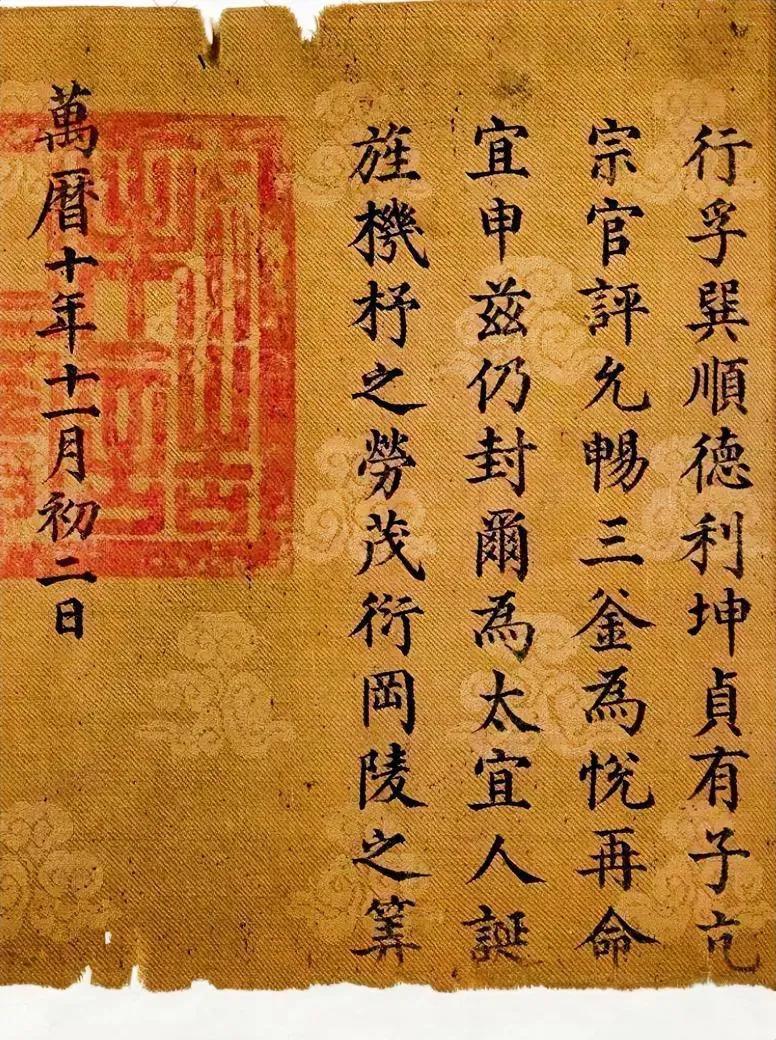 行孚巽順德利坤貞有子亢
宗官評允暢三釜為悅再命
宜申茲仍封爾為太宜人誕
旌機杼之勞茂衍岡陵之筭
萬曆十年十一月初二日